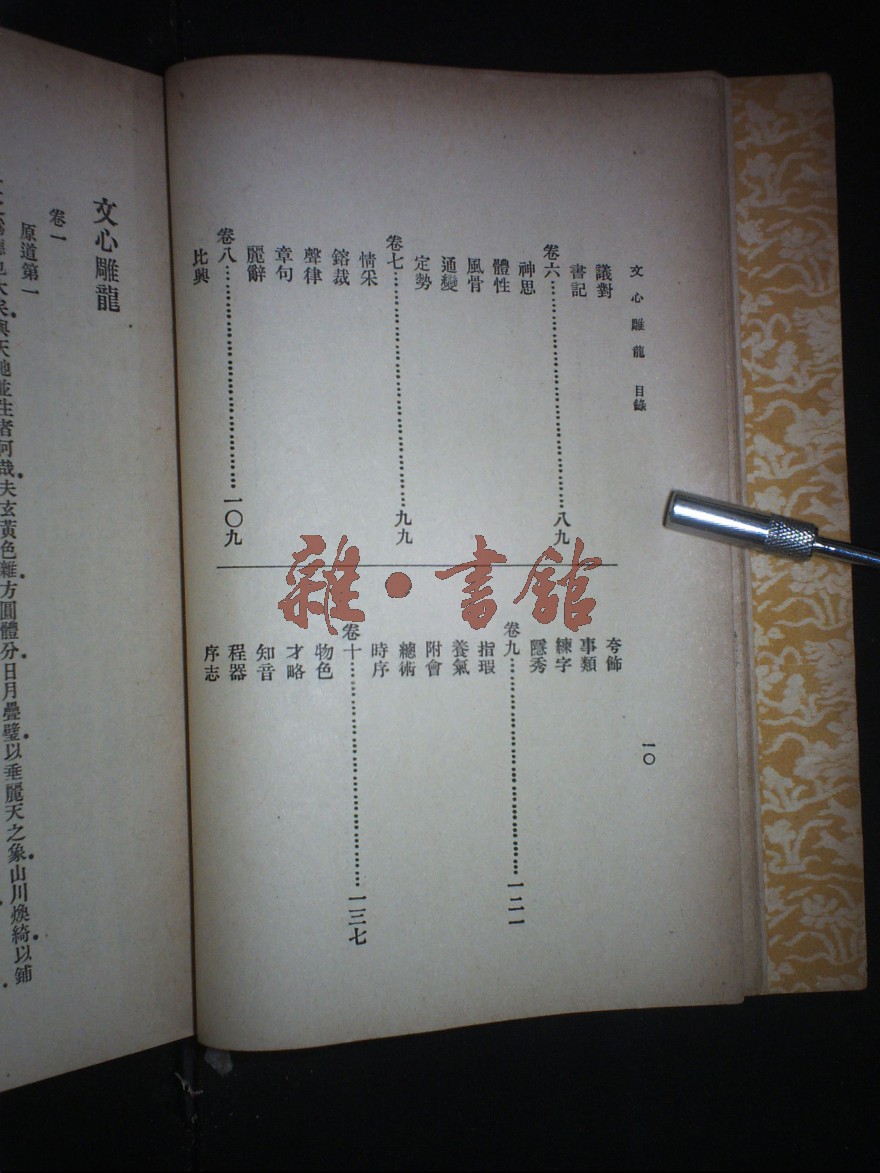 文心雕龍 目錄
議對
書記
卷六……八九
神思
體性
風骨
通變
定勢
卷七……九九
情采
鎔裁
聲律
章句
麗辭
卷八……一〇九
比興
夸飾
事類
練字
隱秀
卷九……一二一
指瑕
養氣
附會
總術
時序
卷十……一三七
物色
才略
知音
程器
序志
一〇
雜·書館
文心雕龍
卷一
原道第一
也大矣與天地並生者何哉夫玄黃色雜方圓體分日月疊璧以垂麗天之象山川煥綺以鋪